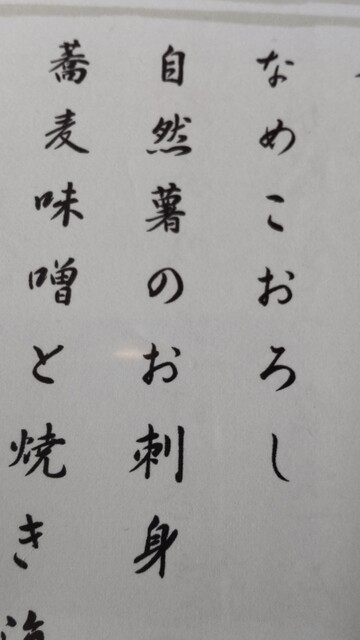 なめこおろし
自然薯のお刺身
蕎麦味噌と焼き